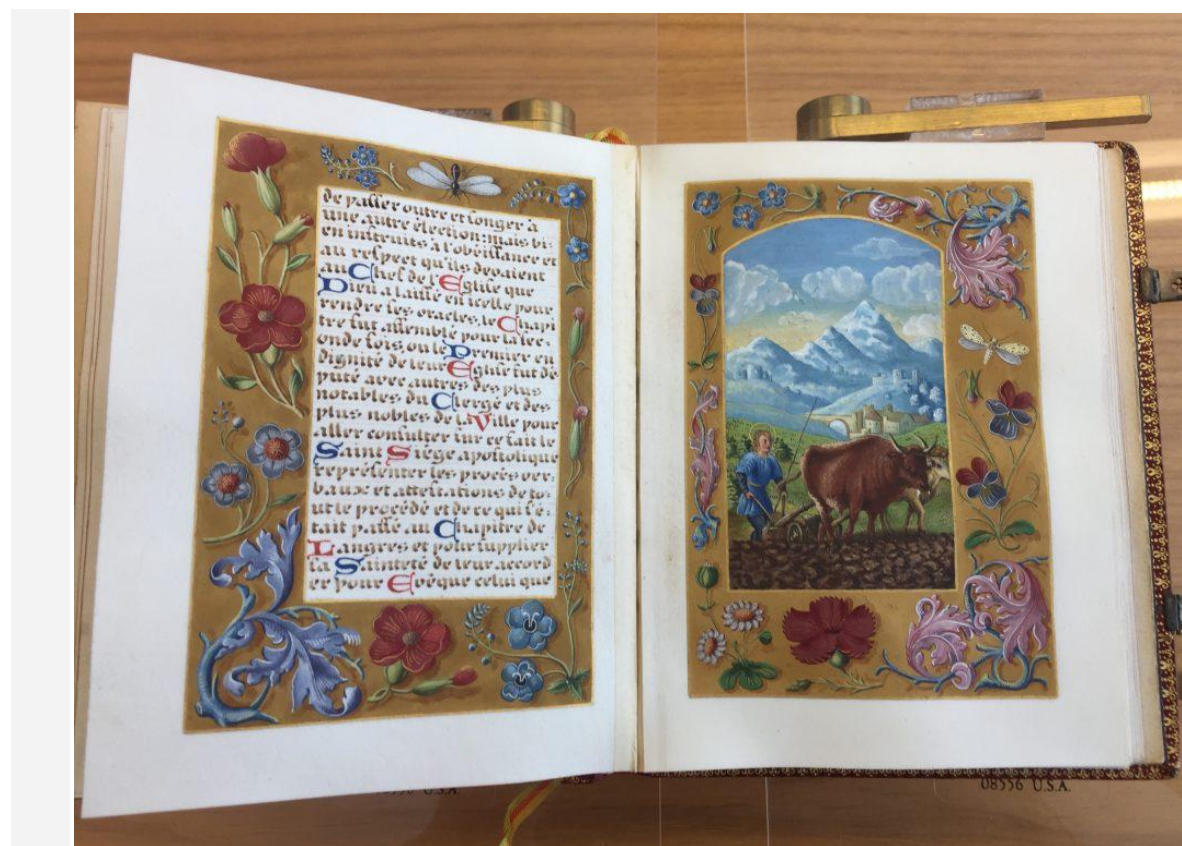 de passer outre et songer à
une autre élection: mais bi-
en instruits à l'obéissance et
au respect qu'ils devaient
au Chef de l'Eglise que
Dieu a laissé en icelle pour
rendre ses oracles, le Chapi
tre fut assemblé pour la sec-
onde fois, où le Premier en
dignité de leur Eglise fut dé
puté avec autres des plus
notables du Clergé et des
plus nobles de la Ville pour
aller consulter sur ce fait le
Saint Siège apostolique
représenter les procès ver-
baux et attestations de to-
ut le procédé et de ce qui s'é-
tait passé au Chapitre de
Langres et pour supplier
sa Sainteté de leur accord
er pour Evêque celui que
08556 U.S.A.